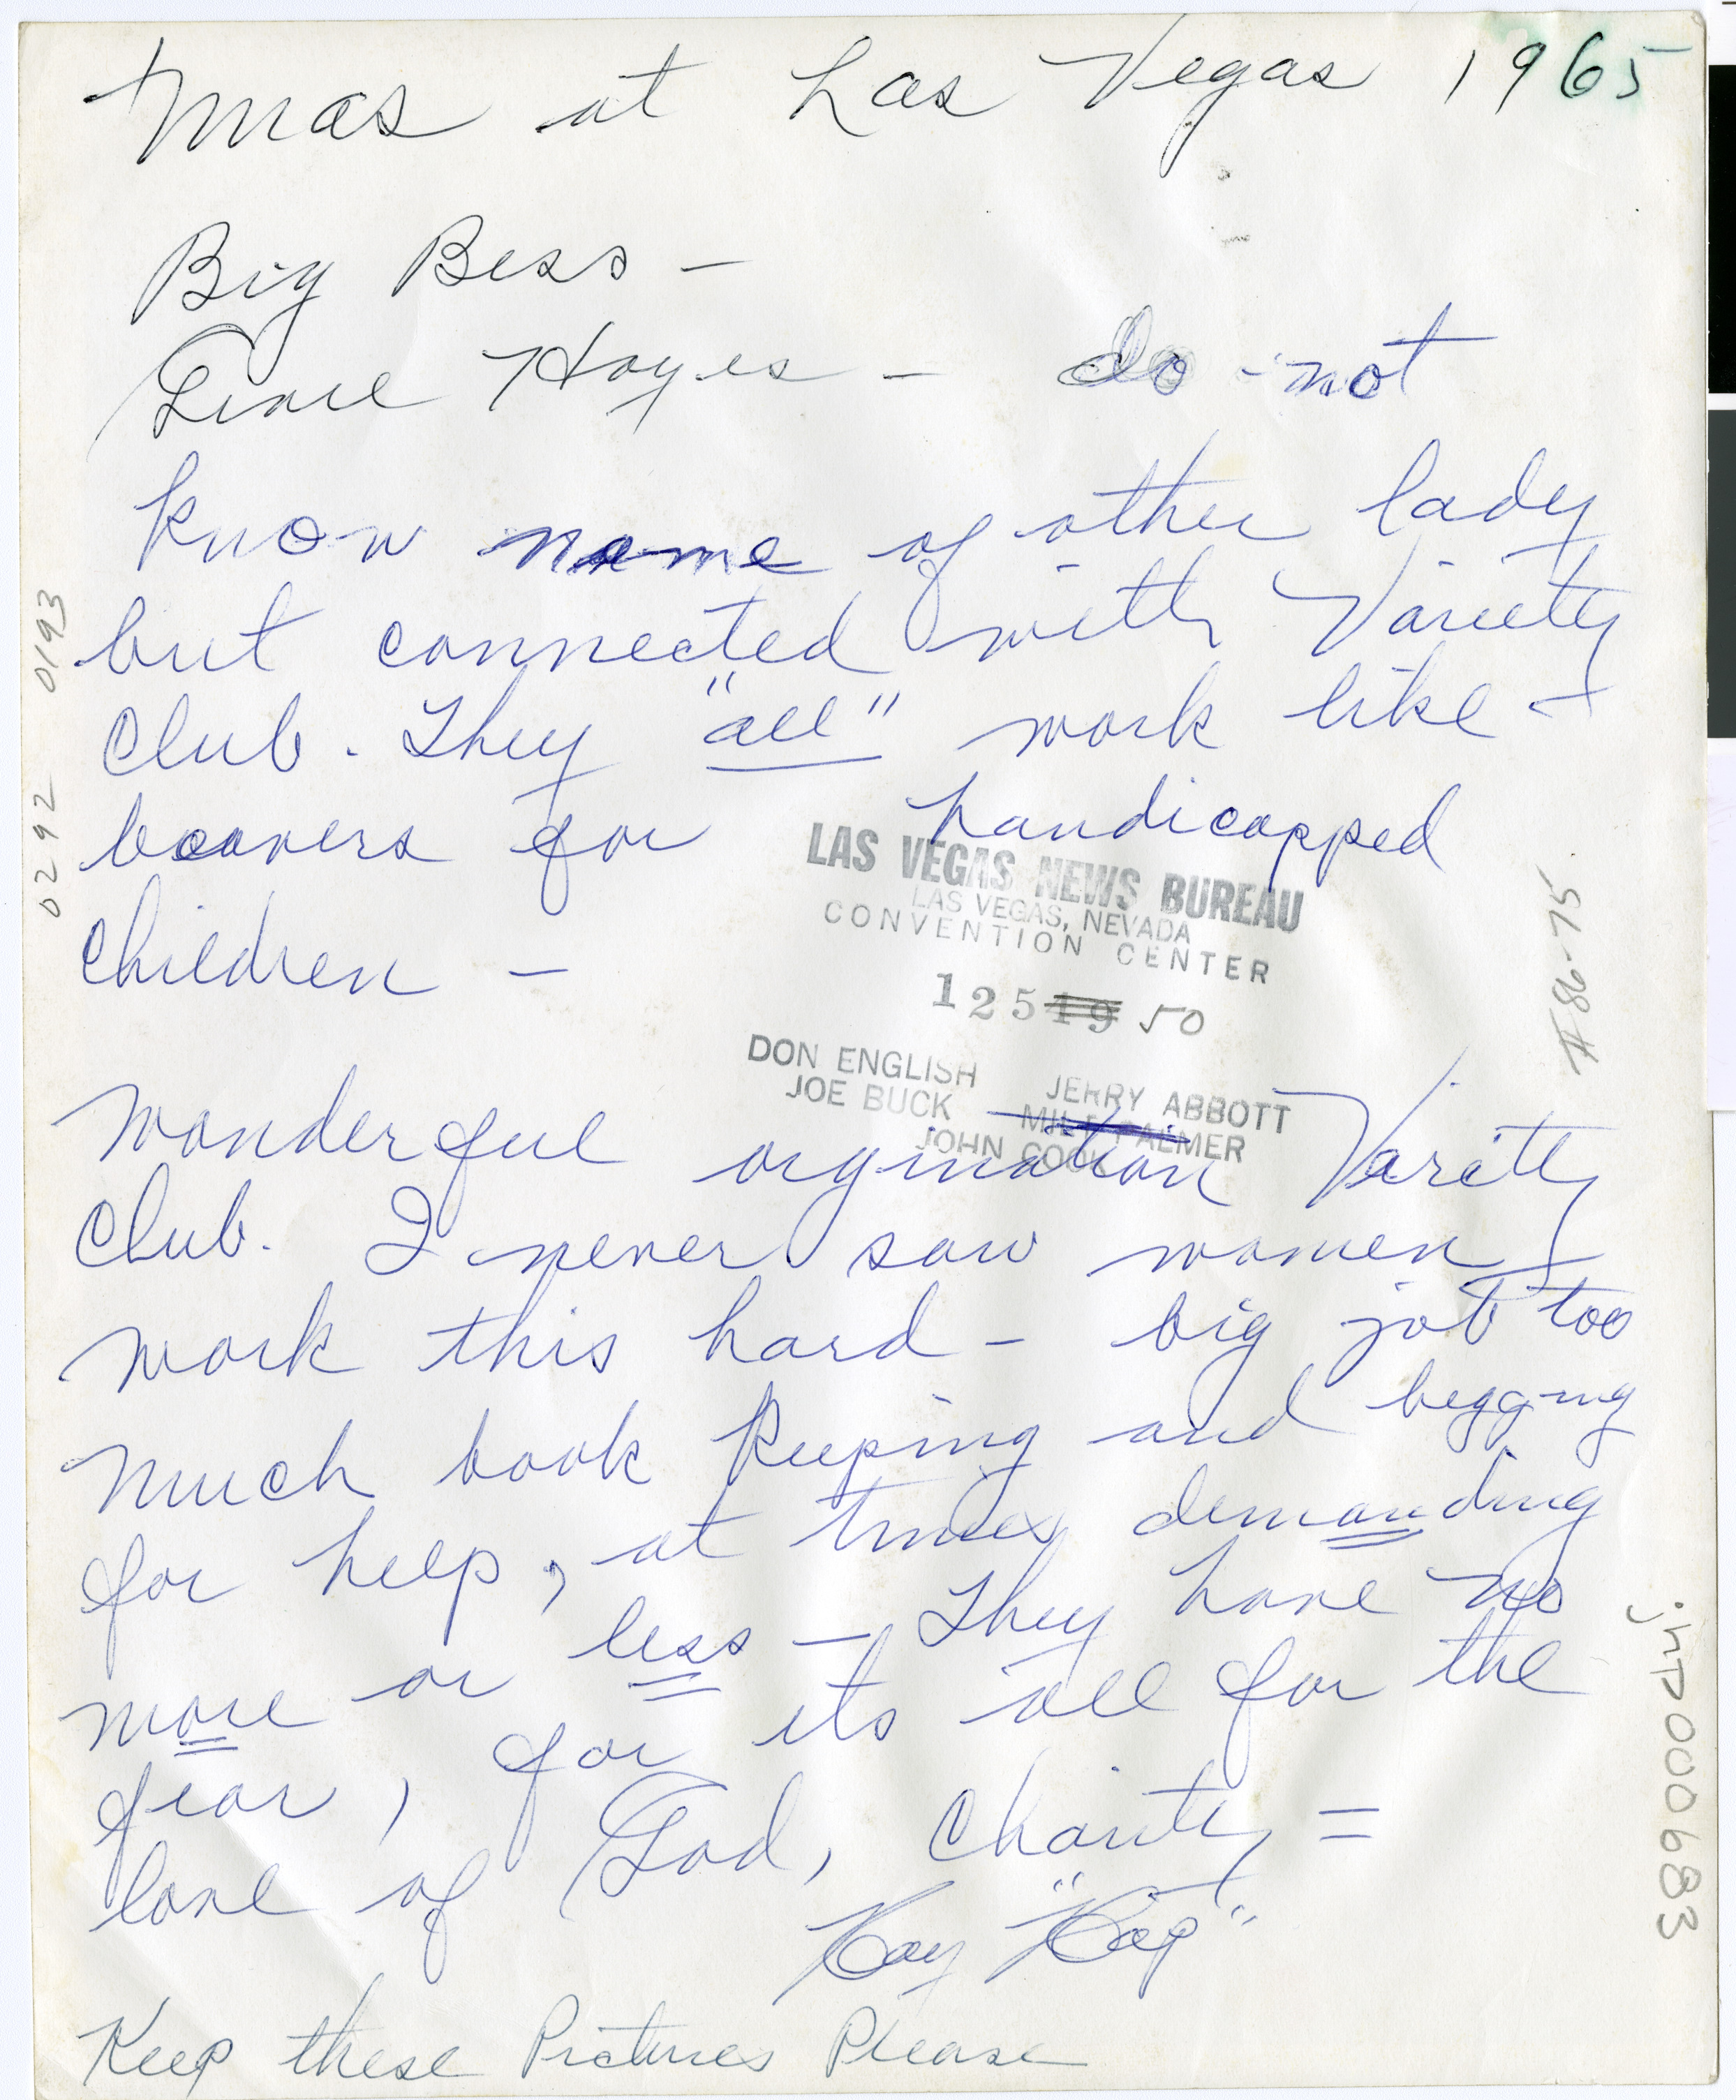 Xmas at Las Vegas 1965
Big Bess -
Hayes - do not
know name of other lady
but connected with Variety
Club. They "all" work like
beavers for handicapped
children -
LAS VEGAS NEWS BUREAU
LAS VEGAS, NEVADA
CONVENTION CENTER
12519 50
DON ENGLISH JERRY ABBOTT
JOE BUCK MILT PALMER
JOHN COOK
Wonderful orgination Varity
Club. I never saw women
work this hard - big job too
much book keeping and begging
for help, at times demanding
more or less - They have no
fear, for its all for the
love of God, Charity =
Kay "Kap"
Keep these Pictures Please
0292 0193
#86-75
jhp000683